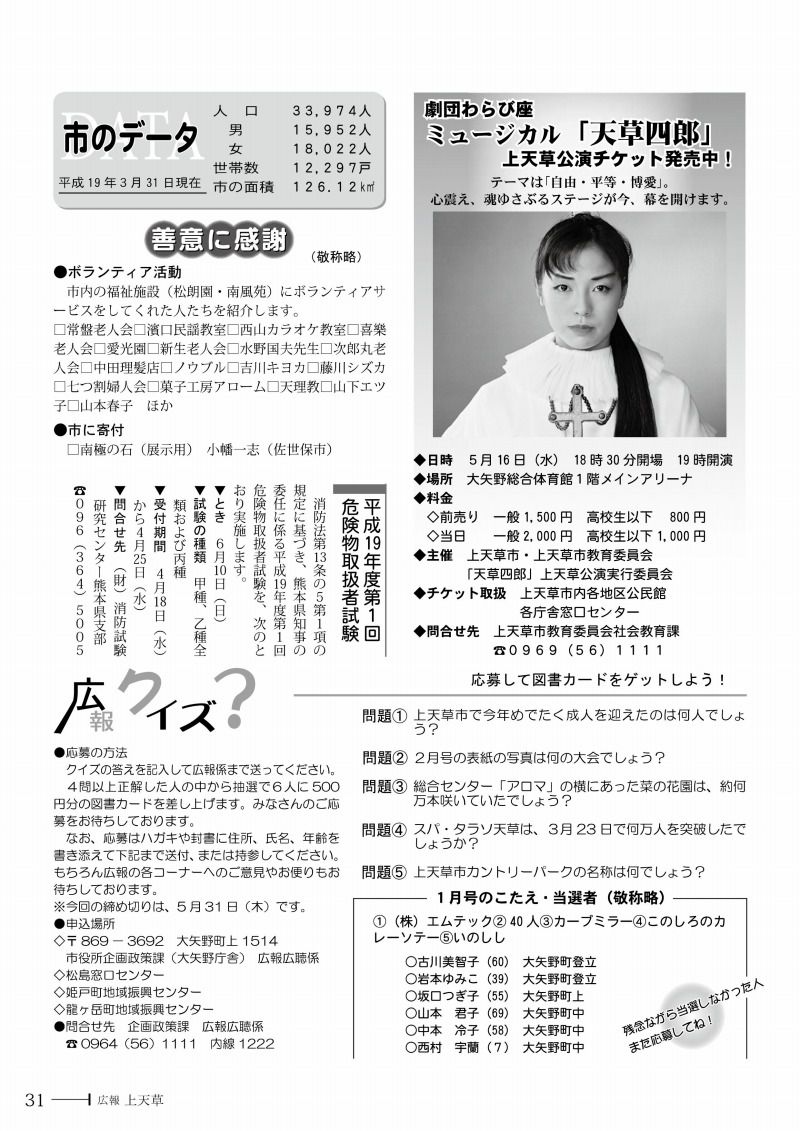 DATA
市のデータ
平成19年3月31日現在
人　口　33,974人
男　15,952人
女　18,022人
世帯数　12,297戸
市の面積　126.12㎢
善意に感謝
（敬称略）
●ボランティア活動
　市内の福祉施設（松朗園・南風苑）にボランティアサ
ービスをしてくれた人たちを紹介します。
□常盤老人会□濱口民謡教室□西山カラオケ教室□喜樂
老人会□愛光園□新生老人会□水野国夫先生□次郎丸老
人会□中田理髪店□ノウブル□吉川キヨカ□藤川シズカ
□七つ割婦人会□菓子工房アローム□天理教□山下エツ
子□山本春子　ほか
●市に寄付
　□南極の石（展示用）　小幡一志（佐世保市）
平成19年度第1回
危険物取扱者試験
　消防法第13条の5第1項の
規定に基づき、熊本県知事の
委任に係る平成19年度第1回
危険物取扱者試験を、次のと
おり実施します。
▼とき　6月10日（日）
▼試験の種類　甲種、乙種全
類および丙種
▼受付期間　4月18日（水）
から4月25日（水）
▼問合せ先　（財）消防試験
研究センター熊本県支部
☎096（364）5005
劇団わらび座
ミュージカル「天草四郎」
上天草公演チケット発売中！
テーマは「自由・平等・博愛」。
心震え、魂ゆさぶるステージが今、幕を開けます。
◆日時　５月16日（水）　18時30分開場　19時開演
◆場所　大矢野総合体育館１階メインアリーナ
◆料金
◇前売り　一般1,500円　高校生以下　800円
◇当日　一般2,000円　高校生以下1,000円
◆主催　上天草市・上天草市教育委員会
「天草四郎」上天草公演実行委員会
◆チケット取扱　上天草市内各地区公民館
各庁舎窓口センター
◆問合せ先　上天草市教育委員会社会教育課
☎0969（56）1111
広報クイズ？
応募して図書カードをゲットしよう！
●応募の方法
　クイズの答えを記入して広報係まで送ってください。
　４問以上正解した人の中から抽選で６人に500
円分の図書カードを差し上げます。みなさんのご応
募をお待ちしております。
　なお、応募はハガキや封書に住所、氏名、年齢を
書き添えて下記まで送付、または持参してください。
もちろん広報の各コーナーへのご意見やお便りもお
待ちしております。
※今回の締め切りは、５月31日（木）です。
●申込場所
◇〒869－3692　大矢野町上1514
市役所企画政策課（大矢野庁舎）　広報広聴係
◇松島窓口センター
◇姫戸町地域振興センター
◇龍ヶ岳町地域振興センター
●問合せ先　企画政策課　広報広聴係
☎0964（56）1111　内線1222
問題①　上天草市で今年めでたく成人を迎えたのは何人でしょ
う？
問題②　２月号の表紙の写真は何の大会でしょう？
問題③　総合センター「アロマ」の横にあった菜の花園は、約何
万本咲いていたでしょう？
問題④　スパ・タラソ天草は、３月23日で何万人を突破したで
しょうか？
問題⑤　上天草市カントリーパークの名称は何でしょう？
１月号のこたえ・当選者（敬称略）
①（株）エムテック②40人③カーブミラー④このしろのカ
レーソテー⑤いのしし
○古川美智子（60）　大矢野町登立
○岩本ゆみこ（39）　大矢野町登立
○坂口つぎ子（55）　大矢野町上
○山本　君子（69）　大矢野町中
○中本　冷子（58）　大矢野町中
○西村　宇蘭（７）　大矢野町中
残念ながら当選しなかった人
また応募してね！
31　広報　上天草